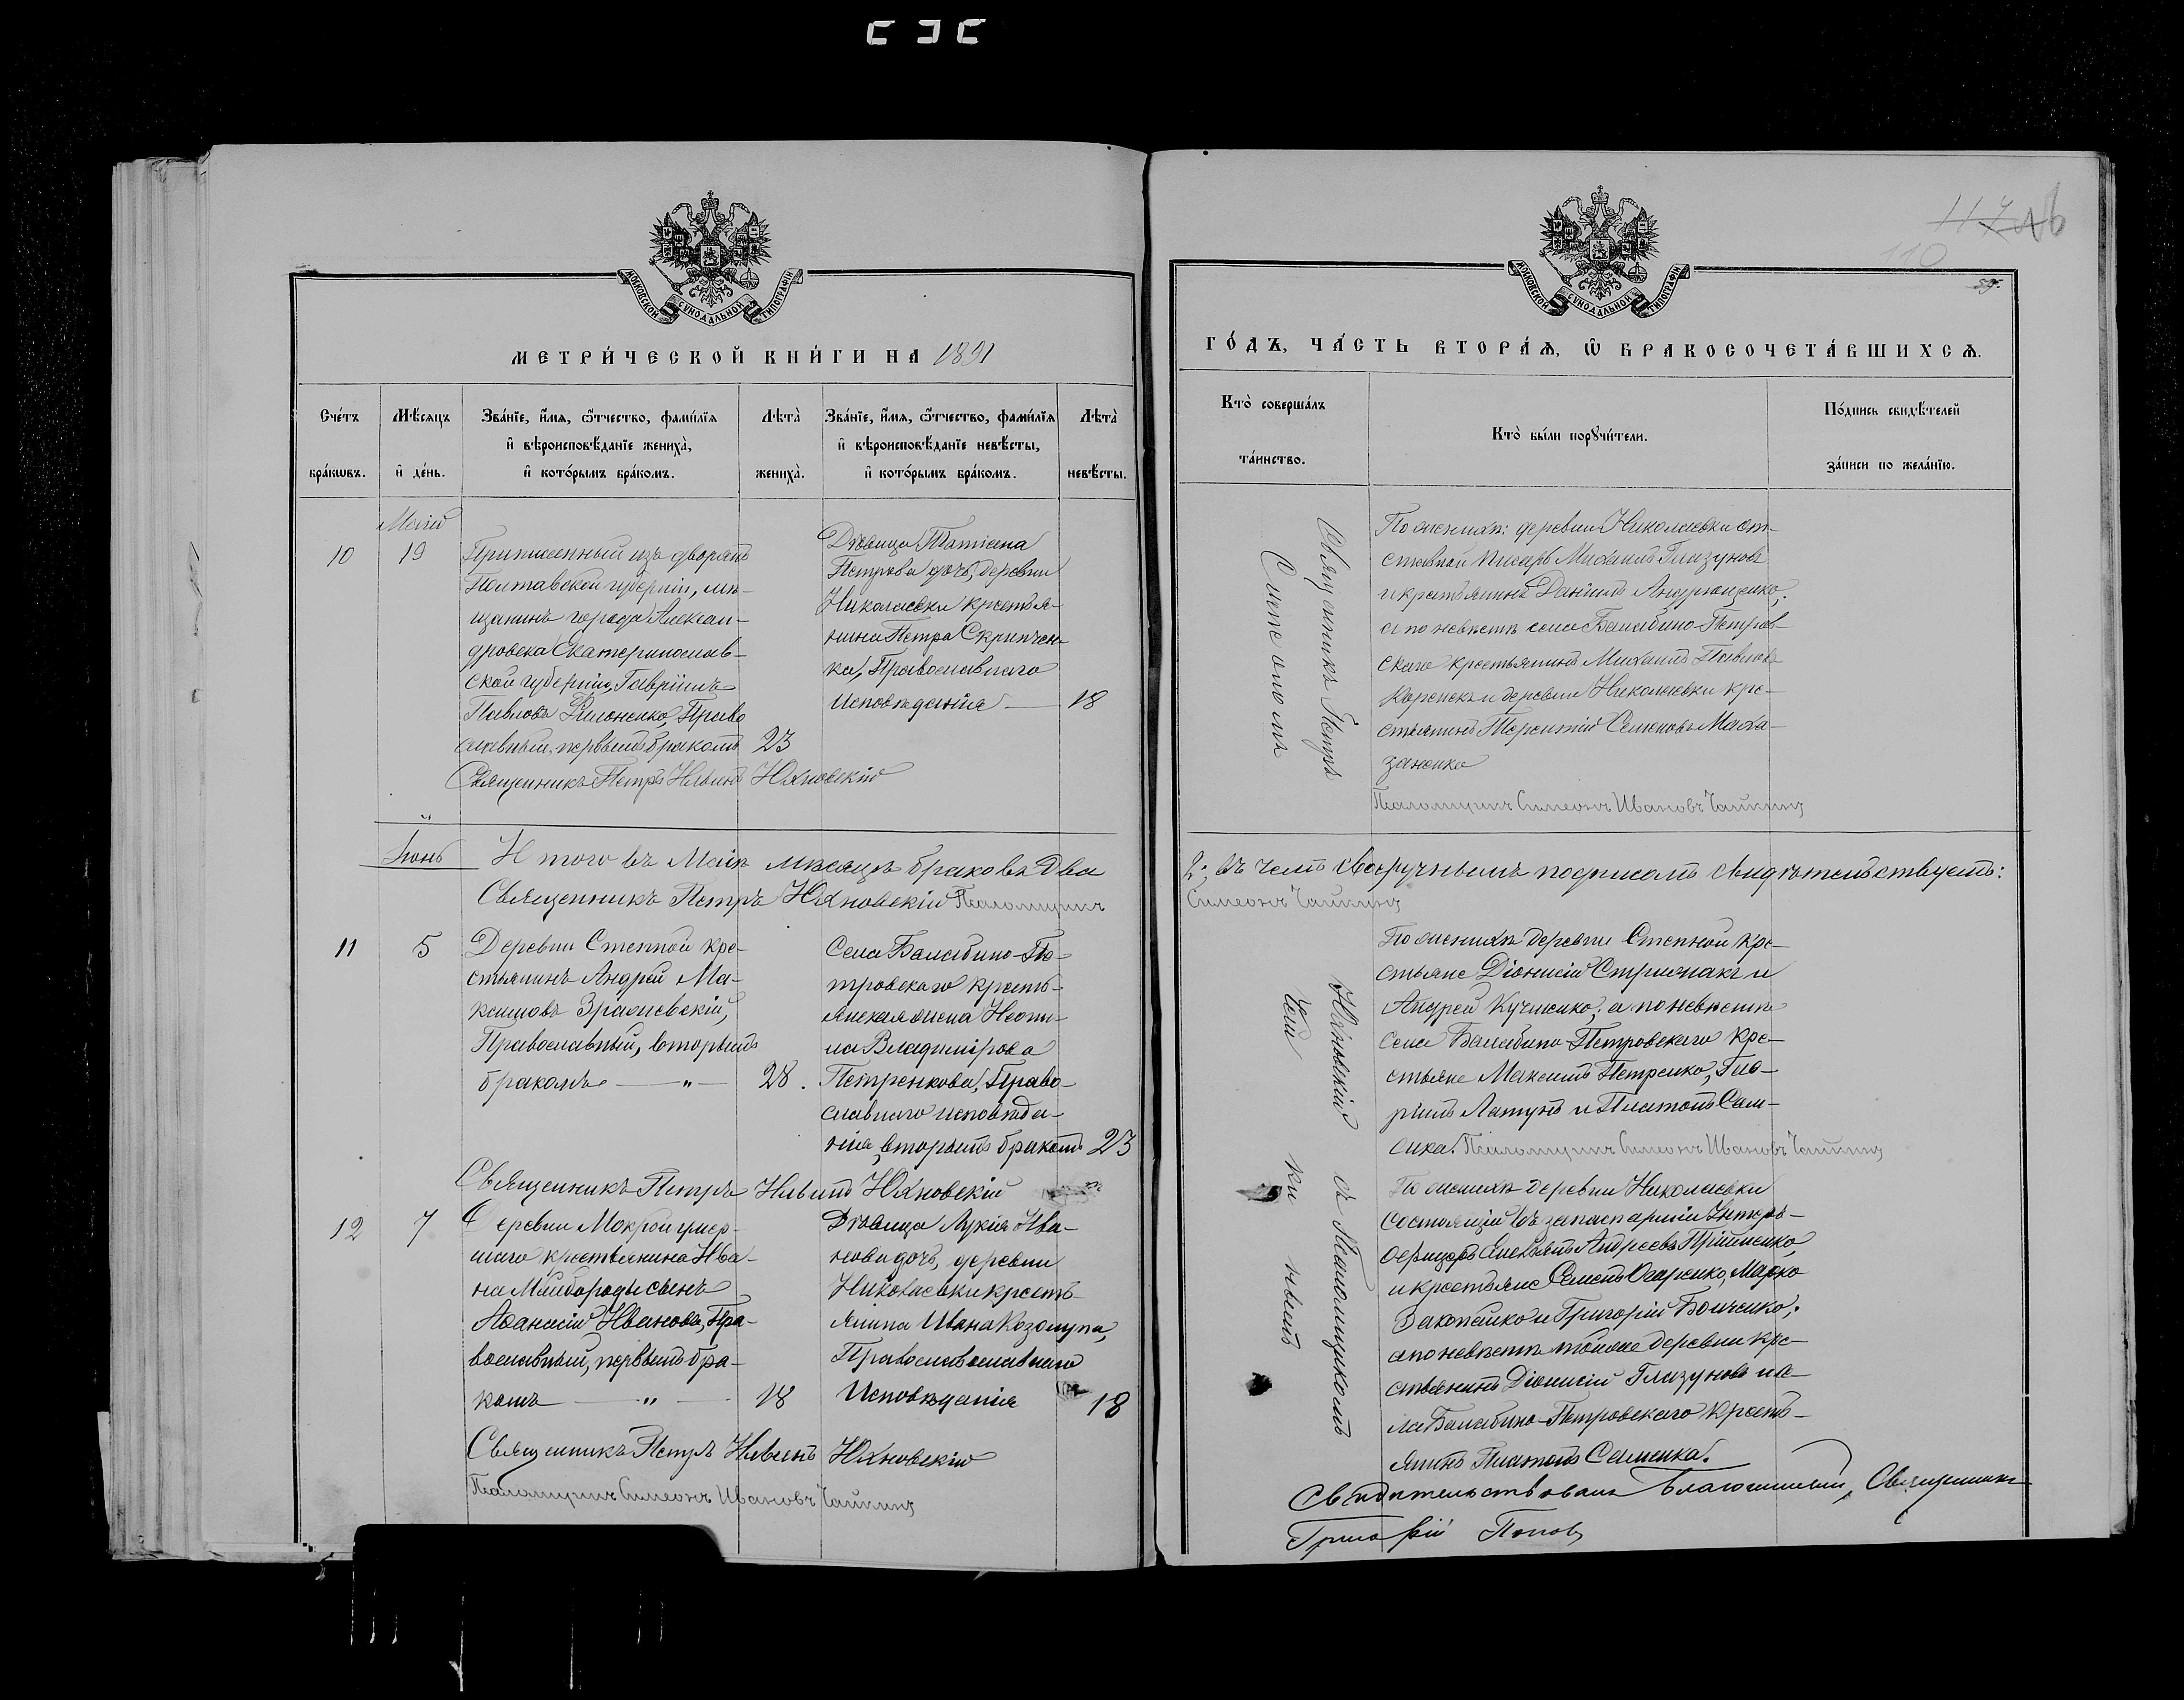 МЕТРИ́ЧЕСКОЙ КНИ́ГИ НА 1891
Сче́тъ бра́кѡвъ.
Мѣ́сяцъ и҆ де́нь.
Зва́нїе, и҆́мя, ѻ҆́тчество, фами́лїя и҆ вѣроисповѣ́данїе жениха̀, и҆ кото́рымъ бра́комъ.
Лѣта̀ жениха̀.
Зва́нїе, и҆́мя, ѻ҆́тчество, фами́лїя и҆ вѣроисповѣ́данїе невѣ́сты, и҆ кото́рымъ бра́комъ.
Лѣта̀ невѣ́сты.
Май
10
19
Причисленный изъ дворянъ
Полтавской губерніи, мѣ-
щанинъ города Алексан-
дровска Екатеринослав-
ской губерніи, Гавріилъ
Павловъ Филоненко, Право
славный, первымъ бракомъ
23
Дѣвица Татіана
Петрова дочь, деревни
Николаевки крестья-
нина Петра Скрипчен-
ка, Православнаго
исповѣданія
18
Священникъ Петръ Ильинъ Юхновскій
Іюнь
Итого въ Маѣ мѣсяцѣ браковъ Два
Священникъ Петръ Юхновскій Псаломщикъ
11
5
Деревни Степной кре-
стьянинъ Андрей Ма-
ксимовъ Зражевскій,
Православный, вторымъ
бракомъ — „ —
28.
Села Балабино-Пе-
тровскаго кресть-
янская жена Неони-
ла Владимірова
Петренкова, Право-
славнаго исповѣда-
нія, вторымъ бракомъ
23
Священникъ Петръ Ильинъ Юхновскій
12
7
Деревни Мокрой умер-
шаго крестьянина Ива-
на Майбороды сынъ
Аѳанасій Ивановъ, Пра-
вославный, первымъ бра-
комъ — „ —
18
Дѣвица Лукія Ива-
нова дочь, деревни
Николаевки кресть-
янина Ивана Козолупа,
Православославнаго
Исповѣданія
18
Священникъ Петръ Ильинъ Юхновскій
Псаломщикъ Симеонъ Ивановъ Чайкинъ
110
ГО́ДЪ, ЧА́СТЬ ВТОРА́Ѧ, Ѡ҆ БРАКОСОЧЕТА́ВШИХСѦ.
Кто̀ соверша́лъ та́инство.
Кто̀ бы́ли порꙋчи́тели.
По́дпись свидѣ́телей за́писи по жела́нїю.
Священникъ Петръ
Юхновскій съ Псаломщикомъ
Симеономъ
Чайкинымъ
По женихѣ: деревни Николаевки от-
ставной писарь Михаилъ Глазуновъ
и крестьянинъ Даніилъ Андрющенко;
а по невѣстѣ села Балабино-Петров-
скаго крестьянинъ Михаилъ Павловъ
и деревни Николаевки кре-
стьянинъ Терентій Семеновъ Маха-
заненко
Псаломщикъ Симеонъ Ивановъ Чайкинъ
2; въ чемъ своеручнымъ подписомъ свидѣтельствуемъ:
Симеонъ Чайкинъ
По женихѣ деревни Степной кре-
стьяне Діонисій Стрижакъ и
Андрей Кучменко; а по невѣстѣ
села Балабино-Петровскаго кре-
стьяне Максимъ Петренко, Гав-
ріилъ Латунъ и Платонъ Сам-
сика. Псаломщикъ Симеонъ Ивановъ Чайкинъ
По женихѣ деревни Николаевки
состоящій въ запасѣ арміи Унтеръ-
офицеръ Андреевъ
и крестьяне Семенъ Огаренко, Марко
Закопайко и Григорій Бойченко;
а по невѣстѣ тойже деревни кре-
стьянинъ Діонисій Глазуновъ и се-
ла Балабино-Петровскаго кресть-
янинъ Платонъ Самсика.
Свидѣтельствовалъ Благочинный, Священникъ
Григорій Поповъ